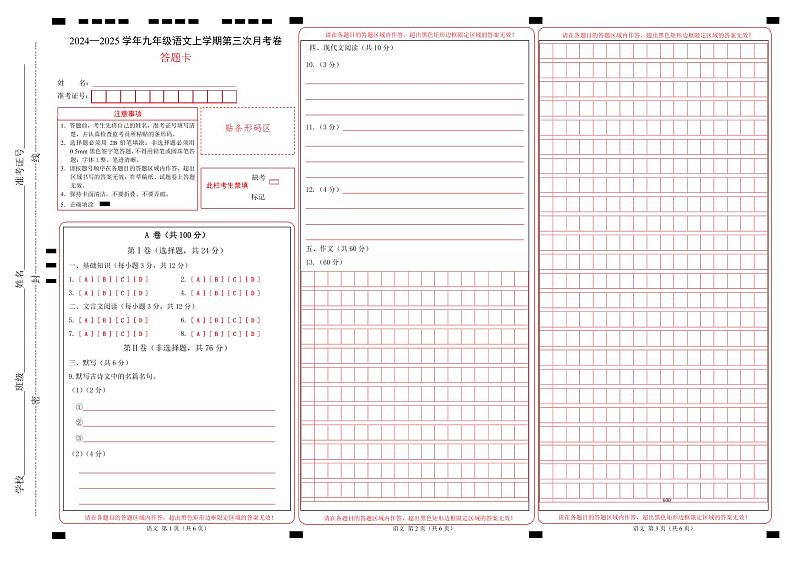 学校
班级
姓名
准考证号
密
封
线
2024—2025学年九年级语文上学期第三次月考卷
答题卡
姓 名：
准考证号：
注意事项
1．答题前，考生先将自己的姓名，准考证号填写清
楚，并认真检查监考员所粘贴的条形码。
2．选择题必须用 2B 铅笔填涂；非选择题必须用
0.5mm 黑色签字笔答题，不得用铅笔或圆珠笔答
题；字体工整、笔迹清晰。
3．请按题号顺序在各题目的答题区域内作答，超出
区域书写的答案无效；在草稿纸、试题卷上答题
无效。
4．保持卡面清洁，不要折叠、不要弄破。
5．正确填涂
贴条形码区
此栏考生禁填
缺考
标记
A 卷（共 100 分）
第Ⅰ卷（选择题，共 24 分）
一、基础知识（每小题 3 分，共 12 分）
1. [ A ] [ B ] [ C ] [ D ] 2. [ A ] [ B ] [ C ] [ D ]
3. [ A ] [ B ] [ C ] [ D ] 4. [ A ] [ B ] [ C ] [ D ]
二、文言文阅读（每小题 3 分，共 12 分）
5. [ A ] [ B ] [ C ] [ D ] 6. [ A ] [ B ] [ C ] [ D ]
7. [ A ] [ B ] [ C ] [ D ] 8. [ A ] [ B ] [ C ] [ D ]
第Ⅱ卷（非选择题，共 76 分）
三、默写（共 6 分）
9.默写古诗文中的名篇名句。
（1）（2 分）
①
②
③
（2）（4 分）
请在各题目的答题区域内作答，超出黑色矩形边框限定区域的答案无效！
语文 第 1 页（共 6 页）
请在各题目的答题区域内作答，超出黑色矩形边框限定区域的答案无效！
四、现代文阅读（共 10 分）
10.（3 分）
11.（3 分）
12.（4 分）
五、作文（共 60 分）
13.（60 分）
请在各题目的答题区域内作答，超出黑色矩形边框限定区域的答案无效！
语文 第 2 页（共 6 页）
请在各题目的答题区域内作答，超出黑色矩形边框限定区域的答案无效！
600
请在各题目的答题区域内作答，超出黑色矩形边框限定区域的答案无效！
语文 第 3 页（共 6 页）